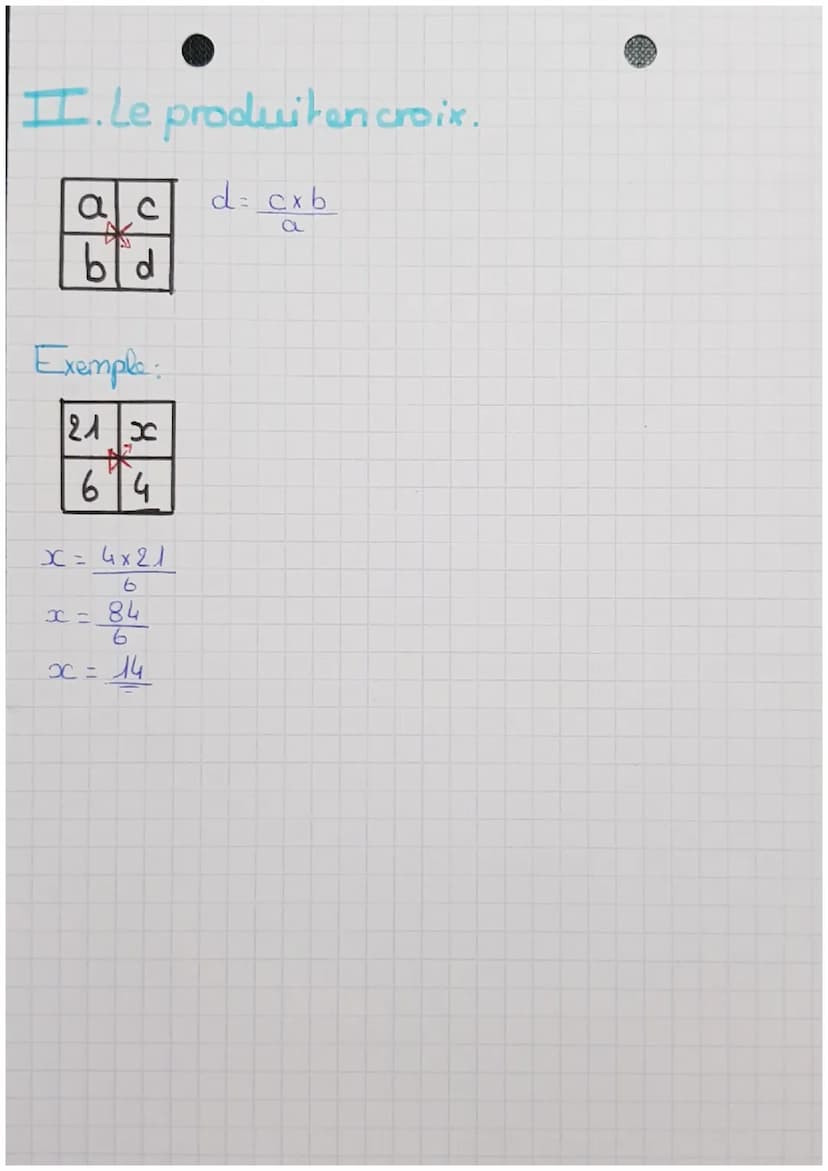 II. Le produit en croix.
a c
b d
d = c x b
a
Exemple:
21 x
6 4
x = 4 x 21
6
x = 84
6
x = 14